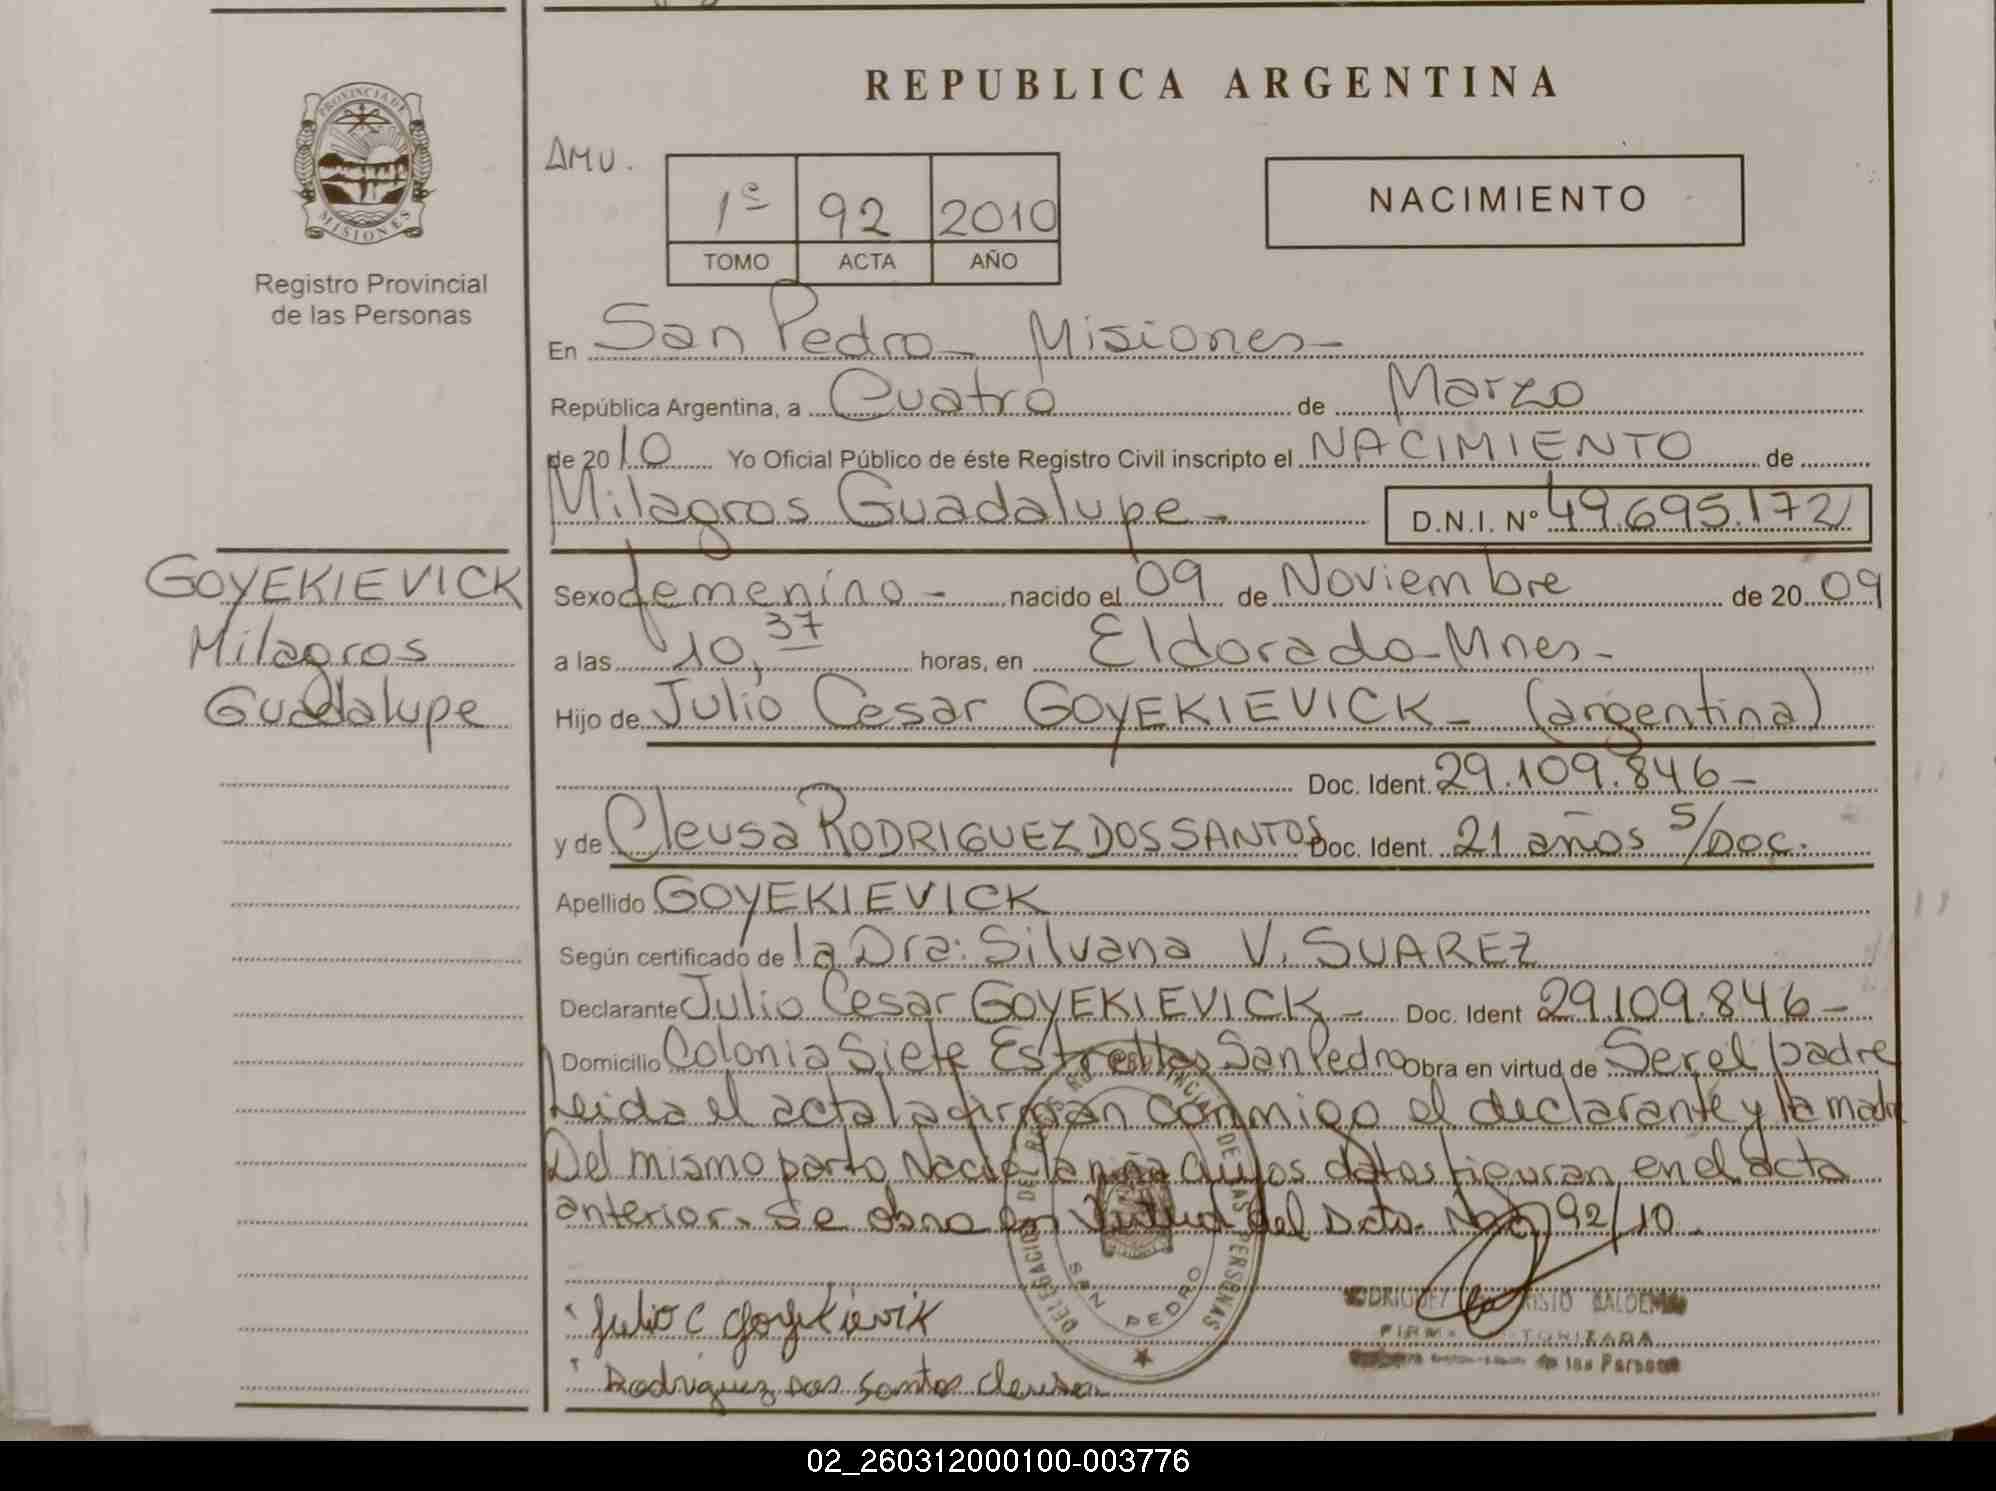 REPUBLICA ARGENTINA
PROVINCIA DE
MISIONES
Registro Provincial
de las Personas
AMU.
1º 92 2010
TOMO ACTA AÑO
NACIMIENTO
En San Pedro - Misiones -
República Argentina, a Cuatro de Marzo
de 2010 Yo Oficial Público de éste Registro Civil inscripto el NACIMIENTO de
Milagros Guadalupe - D.N.I. Nº 49.695.172
GOYEKIEVICK
Milagros
Guadalupe
Sexo femenino - nacido el 09 de Noviembre de 2009
a las 10,37 horas, en Eldorado - Mnes -
Hijo de Julio Cesar GOYEKIEVICK - (argentina)
Doc. Ident. 29.109.846 -
y de Cleusa RODRIGUEZ DOS SANTOS Doc. Ident. 21 años s/Doc.
Apellido GOYEKIEVICK
Según certificado de la Dra: Silvana V. SUAREZ
Declarante Julio Cesar GOYEKIEVICK - Doc. Ident 29.109.846 -
Domicilio Colonia Siete Estrellas San Pedro Obra en virtud de Ser el padre
Leida el acta la firman conmigo el declarante y la madre
Del mismo parto Nacio la niña cuyos datos figuran en el acta
anterior. Se obra en Virtud del Dcto. 92/10
DELEGACION DE PROVINCIAL DE LAS PERSONAS
SAN PEDRO
Julio C Goyekievik
Rodriguez dos Santos Cleusa
RODRIGUEZ
de las Personas
02_260312000100-003776